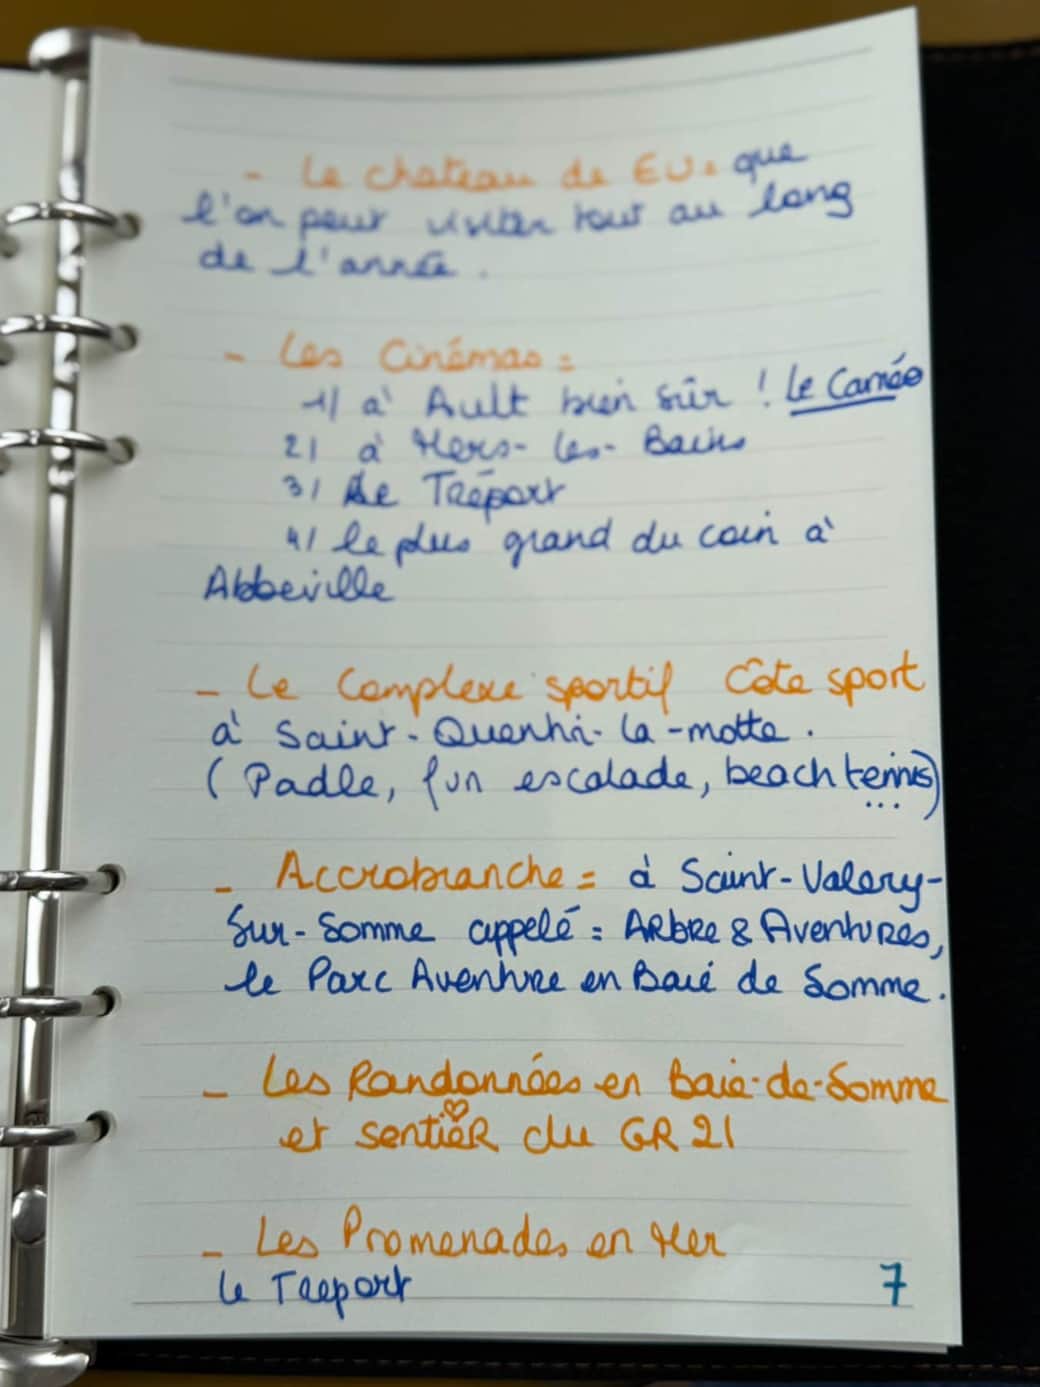 - Le chateau de EU = que
l'on peut visiter tout au long
de l'année.
- Les Cinémas =
1/ à Ault bien sûr ! Le Caméo
2/ à Mers-les-Bains
3/ Le Tréport
4/ le plus grand du coin à
Abbeville
- Le Complexe sportif Côte sport
à Saint-Quentin-la-motte.
( Padle, fun escalade, beach tennis)
...
- Accrobranche = à Saint-Valery-
Sur-Somme appelé = ARbRe & AventuRes,
le Parc AventuRe en Baie de Somme.
- Les Randonnées en Baie-de-Somme
et sentiER du GR 21
- Les Promenades en Mer
le Treport
7